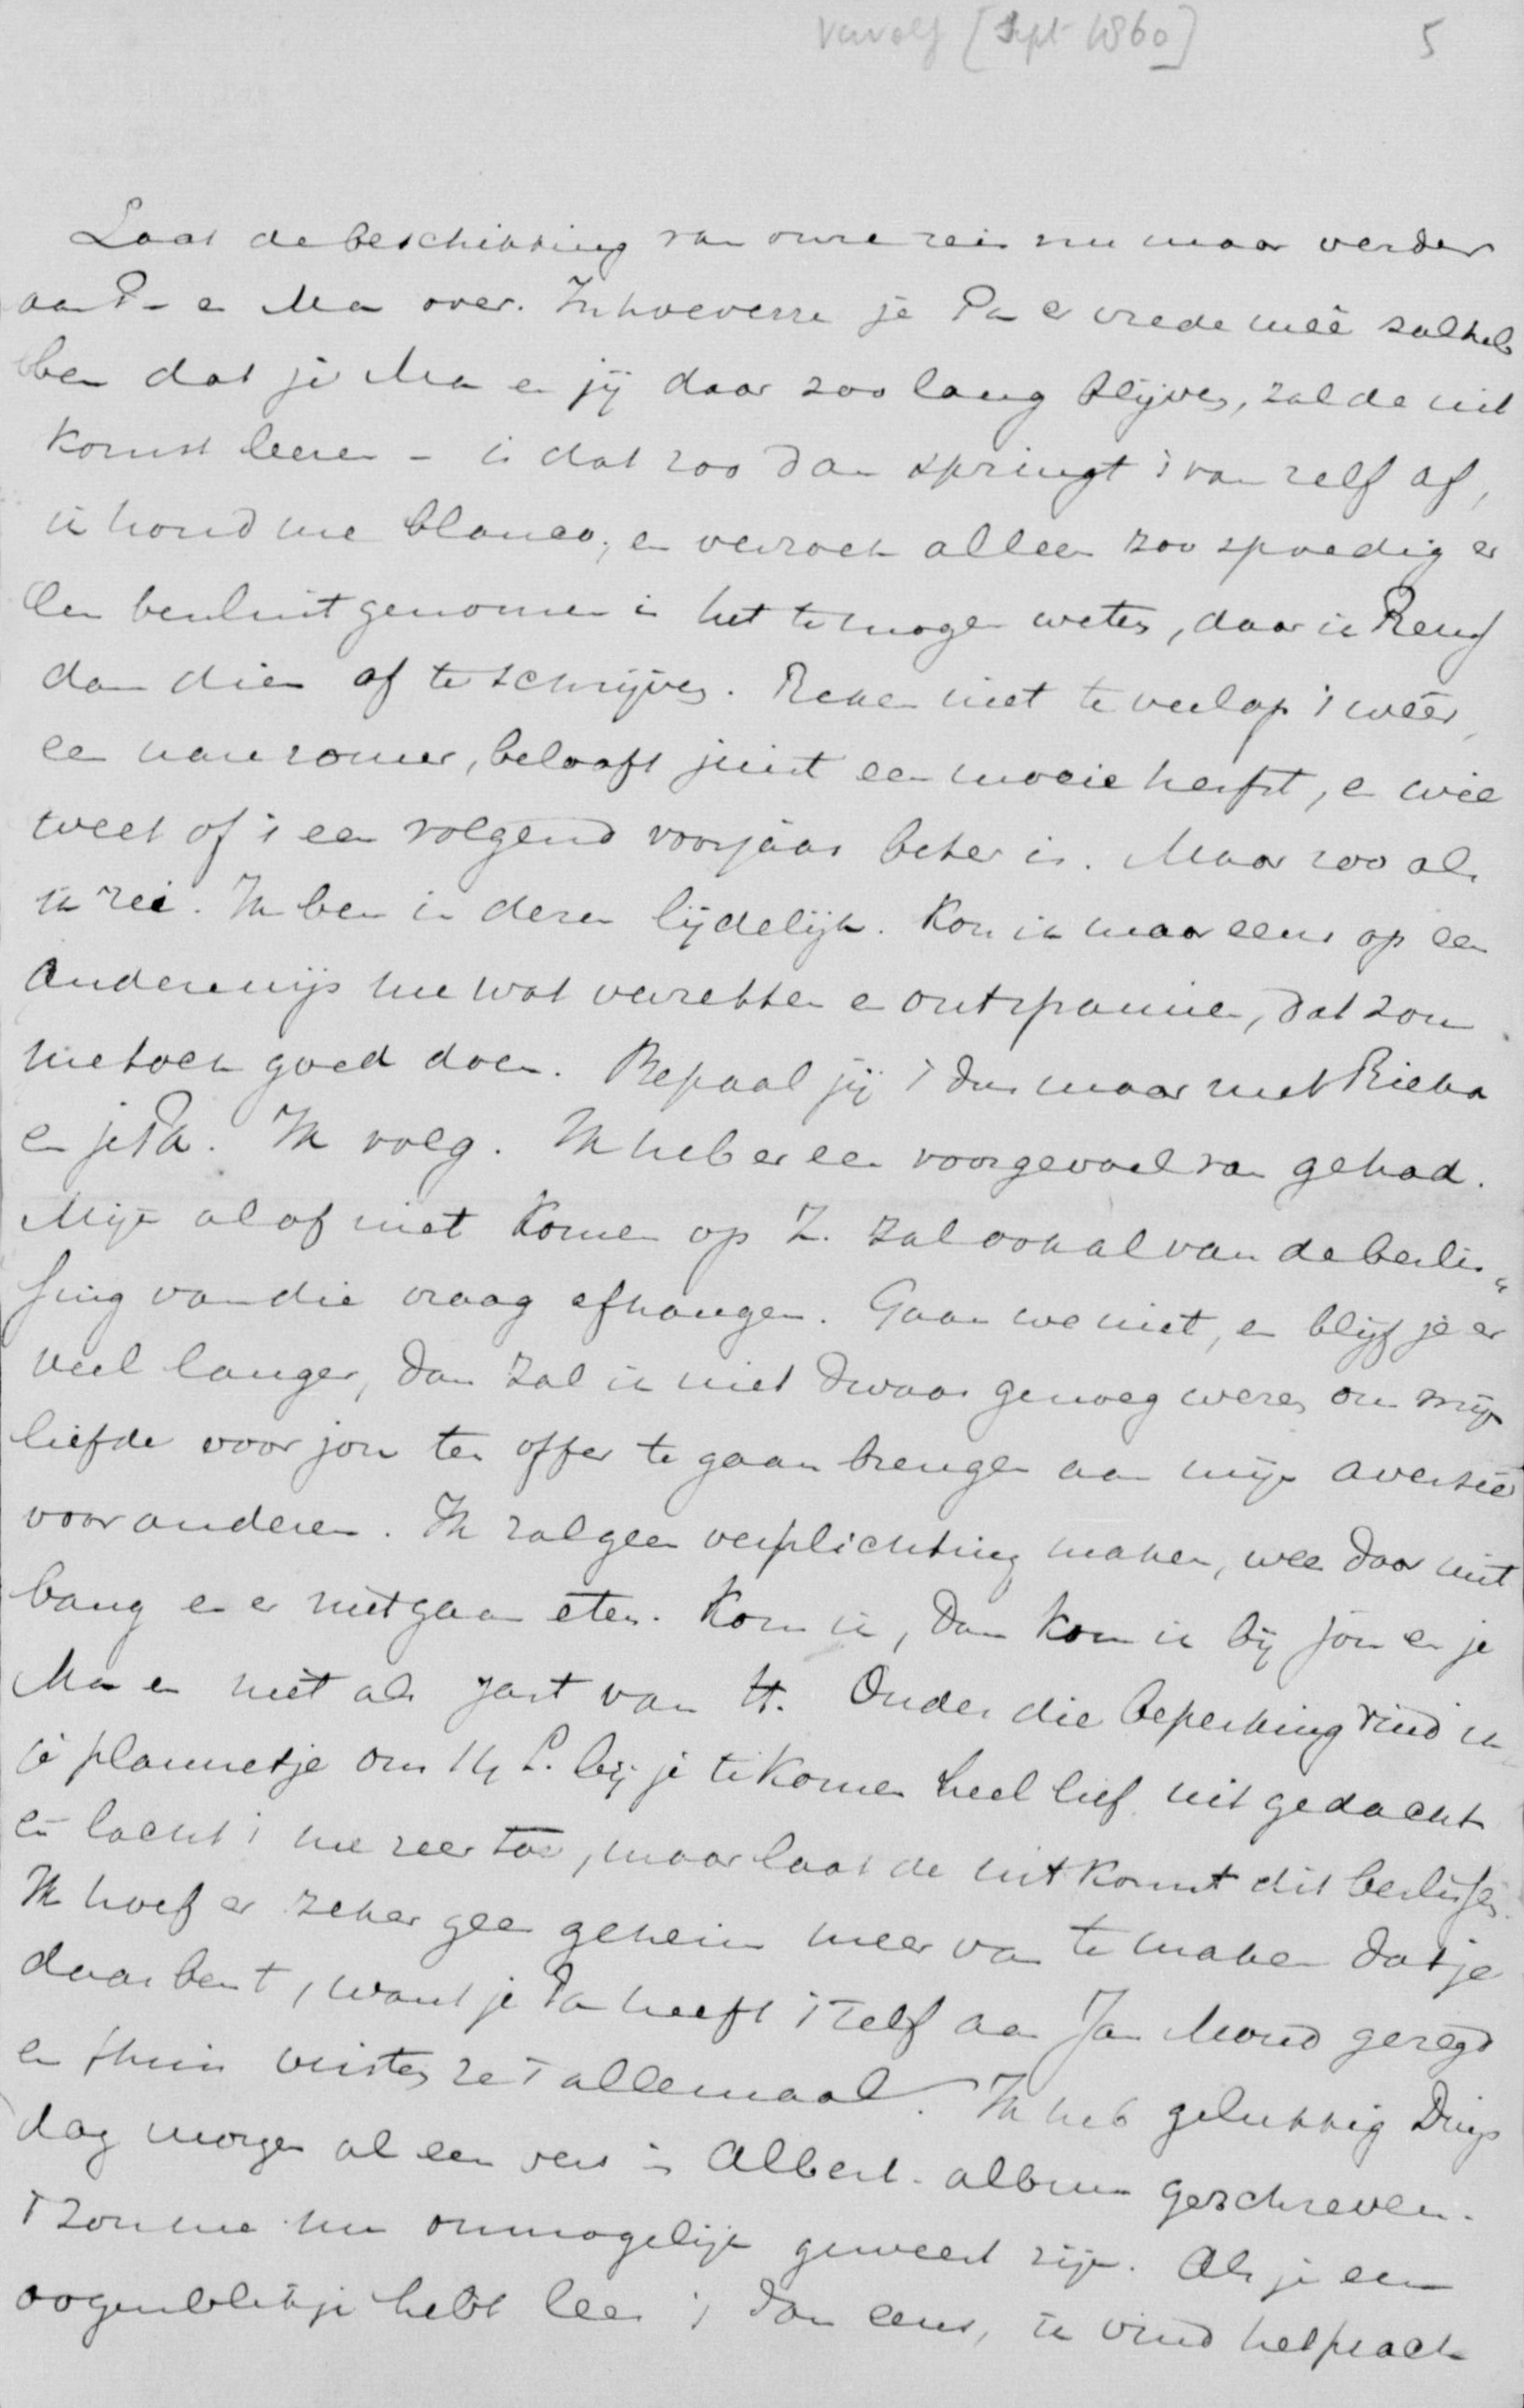 vervolg [Sept 1860] 5
Laat de beschikking van onze reis nu maar verder
aan P- en Ma over. Inhoeverre je Pa er vrede meê zal heb
ben dat je Ma en jij daar zoo lang blijven, zal de uit
komst leeren - is dat zoo dan springt 't van zelf af,
ik houd me blanco, en verzoek alleen zoo spoedig er
een besluit genomen is het te mogen weten, daar ik
dan dien af te schrijven. Reken niet te veel op 't wéér,
een nare zomer, belooft juist een mooie herfst, en wie
weet of 't een volgend voorjaar beter is. Maar zoo als
ik zei. Ik ben in dezen lijdelijk. Kon ik maar eens op een
andere wijs me wat verzetten en ontspannen, dat zou
me toch goed doen. Bepaal jij 't dus maar met Rieka
en je Pa. Ik volg. Ik heb er een voorgevoel van gehad.
Mijn al of niet komen op Z. zal ook al van de beslis„
sing van die vraag afhangen. Gaan we niet, en blijf je er
veel langer, dan zal ik niet dwaas genoeg wezen om mijn
liefde voor jou ten offer te gaan brengen aan mijn aversie
voor anderen. Ik zal geen verplichting maken, wees daar niet
bang en er niet gaan eten. Kom ik, dan kom ik bij jou en je
Ma en niet als gast van H. Onder die beperking vind ik
je plannetje om bij je te komen heel lief uitgedacht
en lacht 't me zeer toe, maar laat de uitkomst dit beslissen.
Ik hoef er zeker geen geheim meer van te maken dat je
daar bent, want je Pa heeft 't zelf aan Jan gezegd
en thuis wisten ze 't allemaal. Ik heb gelukkig Dings
dag morgen al een vers in Alberts album geschreven.
't Zou me nu onmogelijk geweest zijn. Als je een
oogenblikje hebt lees 't dan eens, ik vind het prach